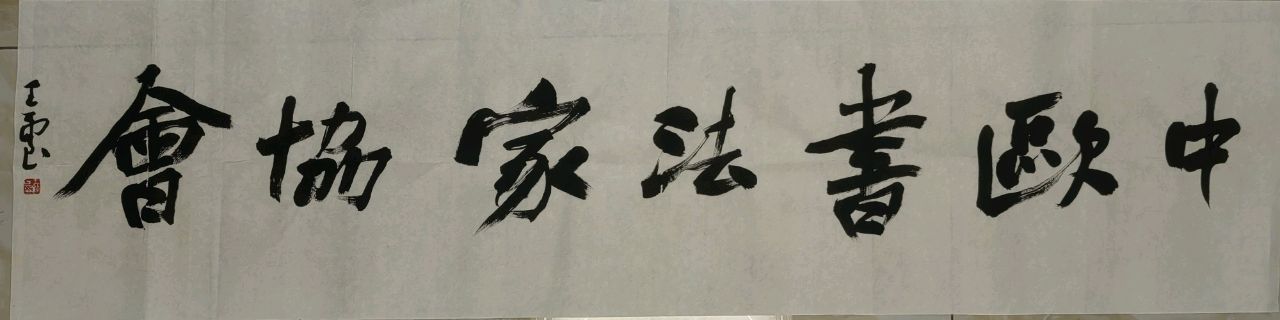 中歐書法家協會
王雲山